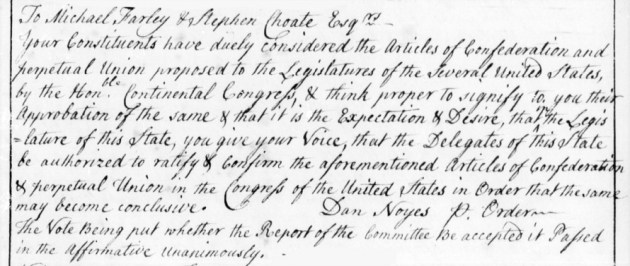 To Michael Farley & Stephen Choate Esqrs –
Your Constituents have duely considered the Articles of Confederation and
perpetual Union proposed to the Legislatures of the Several United States,
by the Honble. Continental Congress, & think proper to signify to you their
Approbation of the same & that it is the Expectation & Desire, that in the Legis
=lature of this State, you give your Voice, that the Delegates of this State
be authorized to ratify & Confirm the aforementioned Articles of Confederation
& perpetual Union in the Congress of the United States in Order that the same
may become conclusive. Dan Noyes P. Order
The Vote Being put whether the Report of the Committee Be accepted it Passed
in the Affirmative Unanimously.